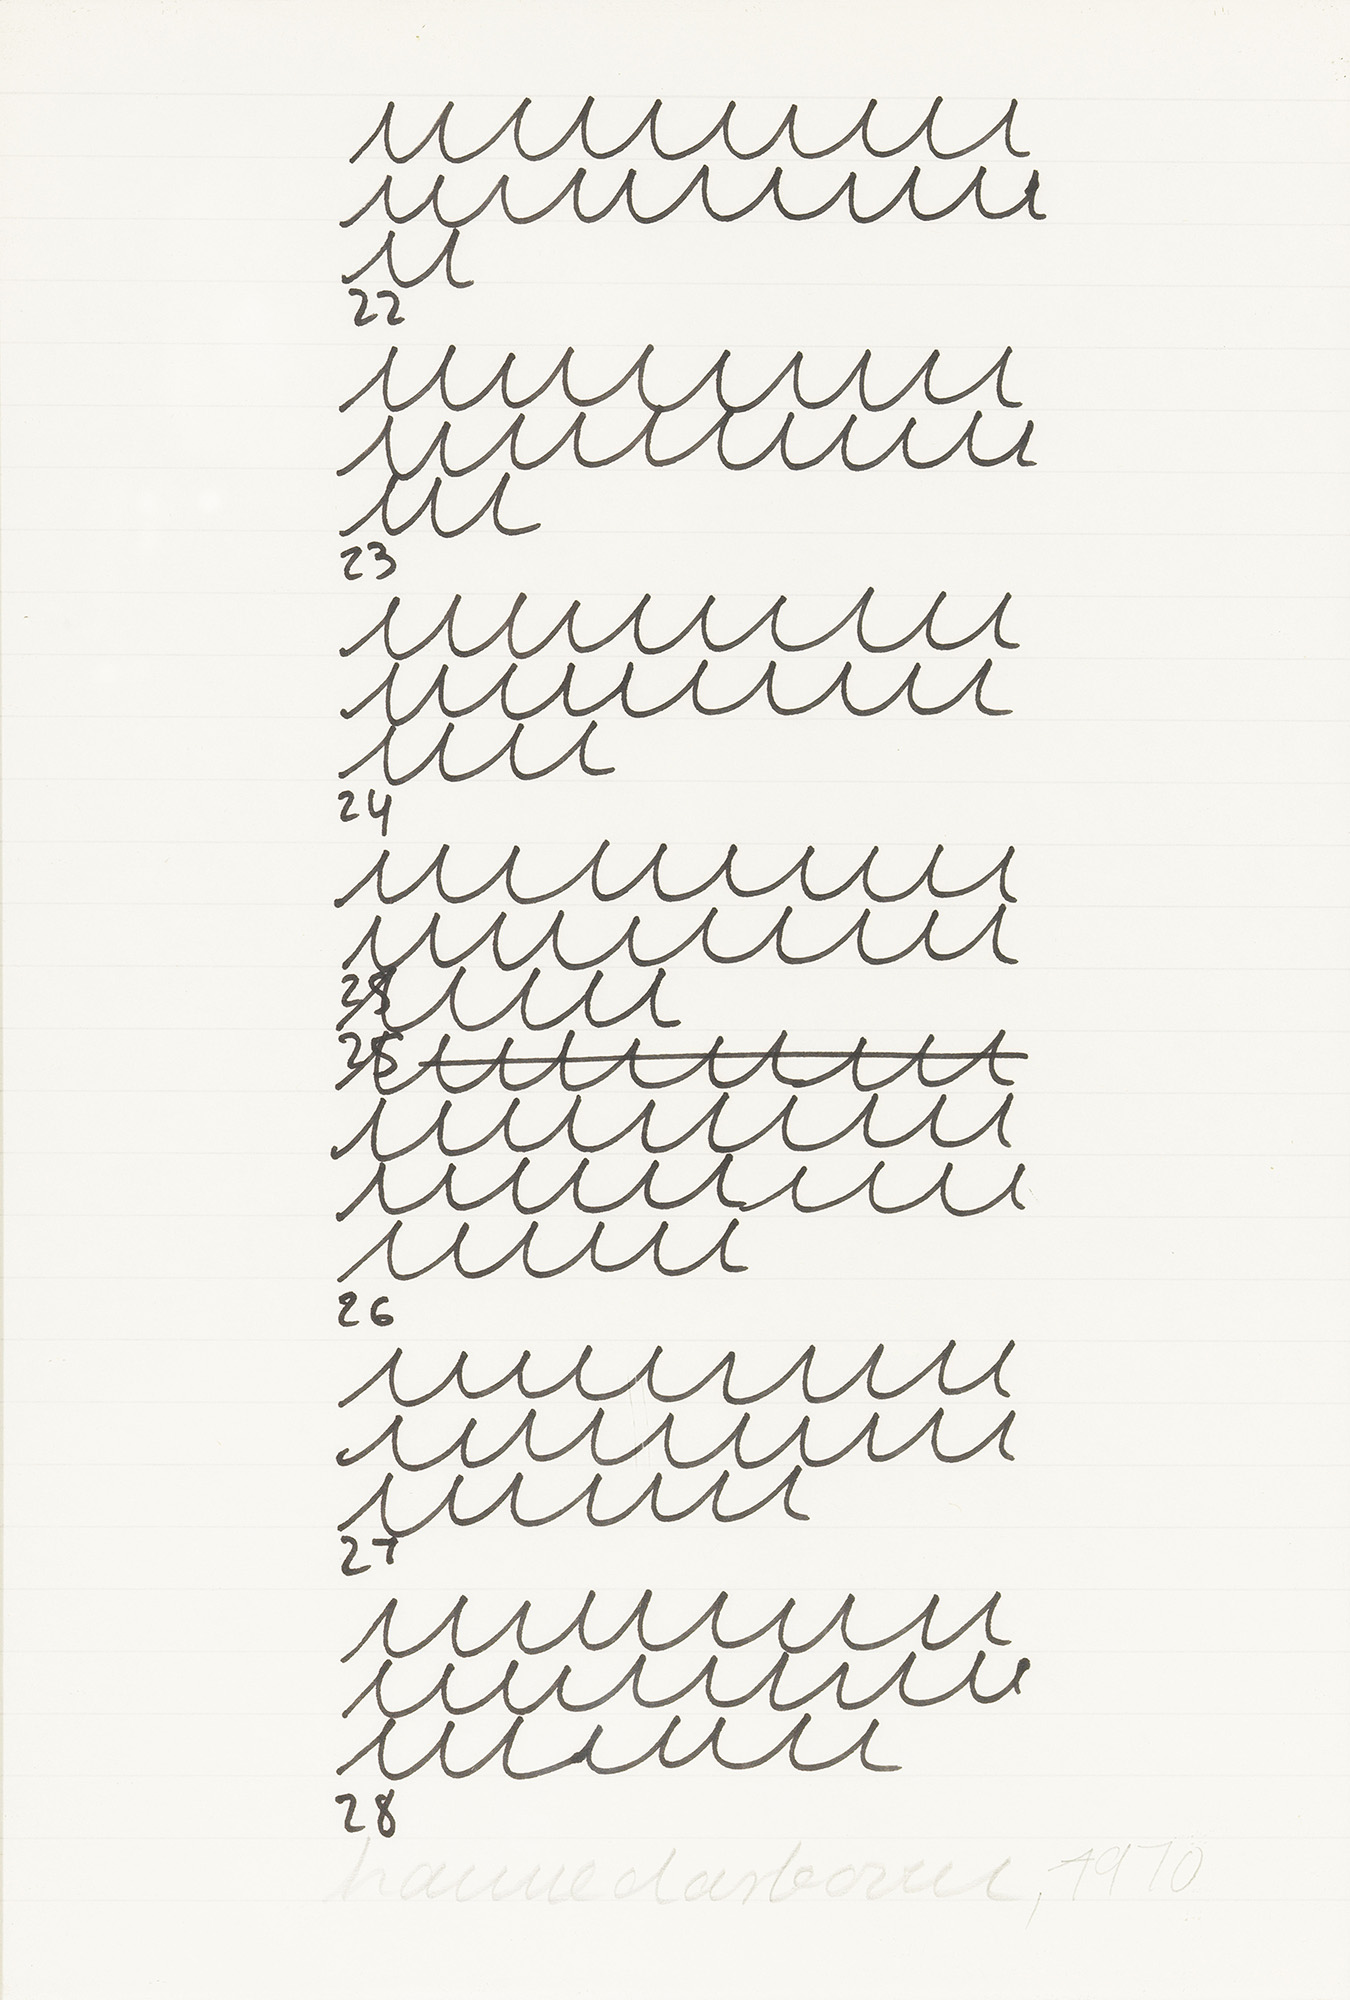 22
23
24
25
26
27
28
hanne darboven, 1970